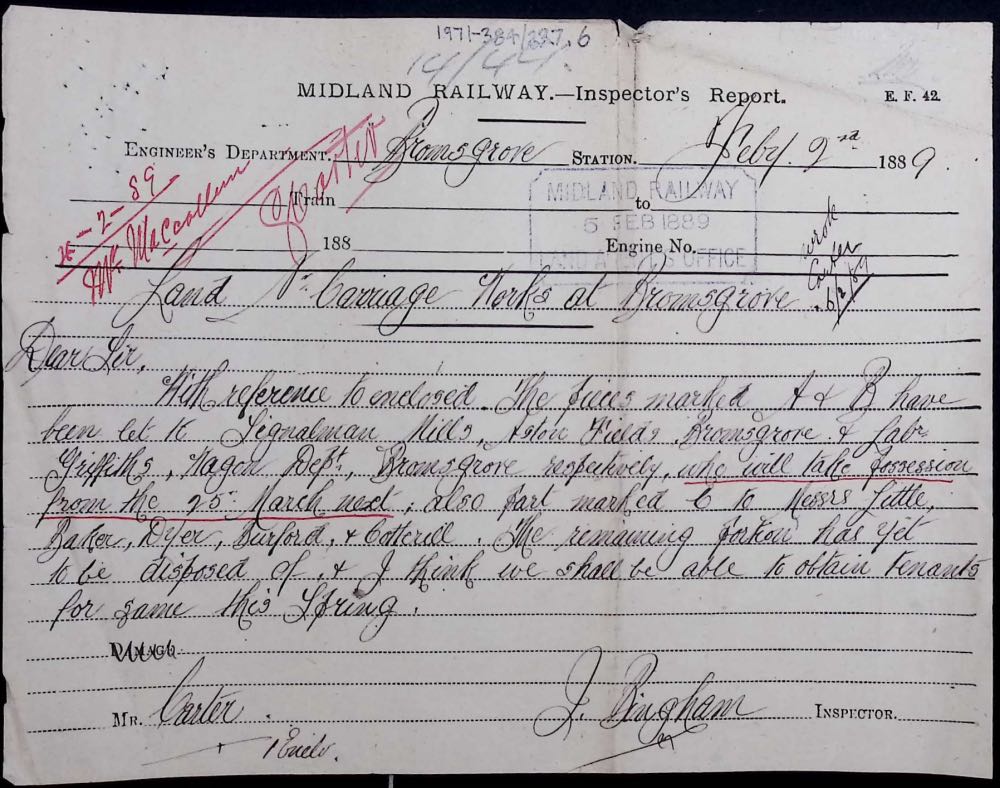 1971-384/327.6
14/44.
MIDLAND RAILWAY.—Inspector's Report.
E. F. 42.
ENGINEER'S DEPARTMENT. Bromsgrove STATION. Feby. 2nd 1889
-2-89
Mr. Maccallum
Train to
188 Engine No.
MIDLAND RAILWAY
5 FEB 1889
OFFICE
wrote
Carter
6/2/89
Land Nr. Carriage Works at Bromsgrove
Dear Sir,
With reference to enclosed. The pieces marked A & B have
been let to Signalman Mills, Aston Fields, Bromsgrove & Labr.
Griffiths, Wagon Dept., Bromsgrove respectively, who will take possession
from the 25th March next; also part marked C to Messrs Little,
Baker, Dyer, Burford, & Cotterill. The remaining portion has yet
to be disposed of, & I think we shall be able to obtain tenants
for same this Spring.
MR. Carter.
J. Bingham INSPECTOR.
1 Enclo.